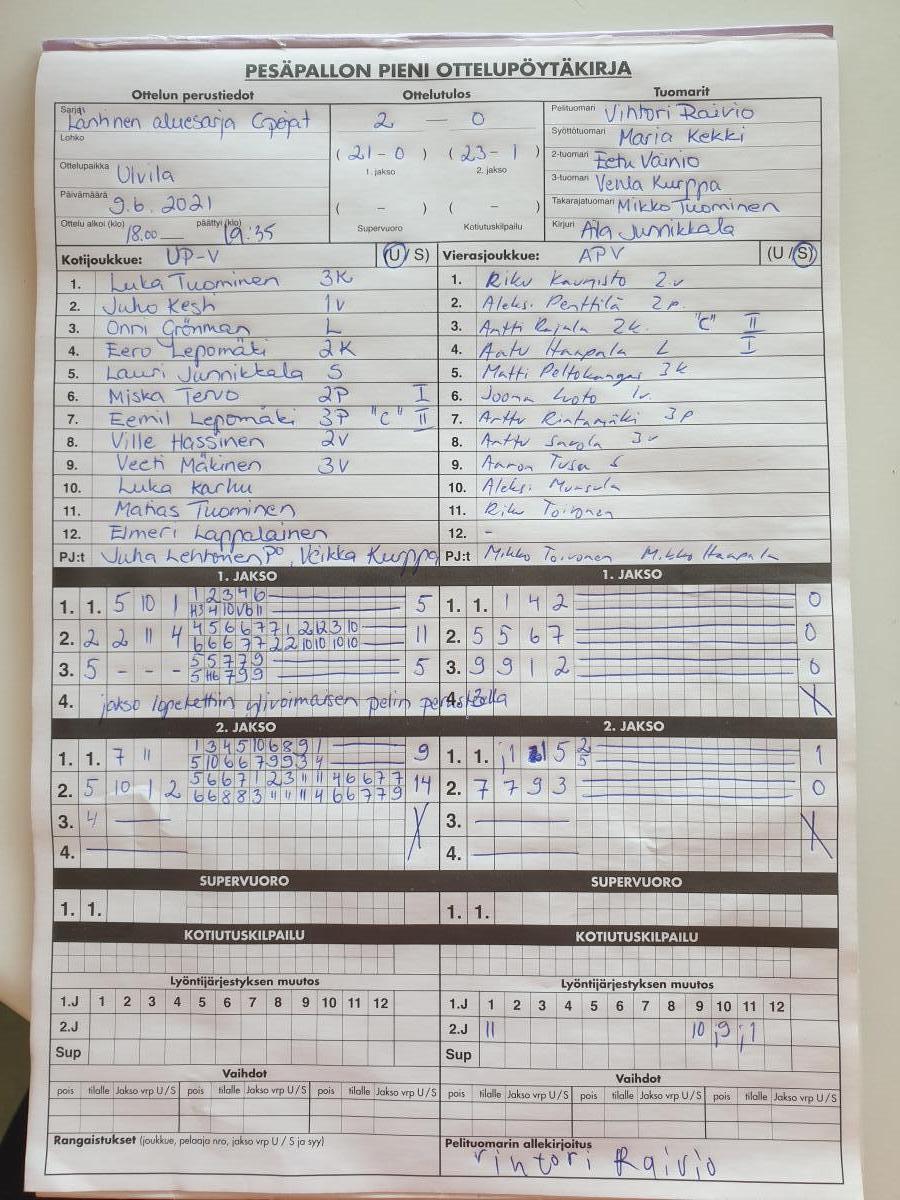 PESÄPALLON PIENI OTTELUPÖYTÄKIRJA
Ottelun perustiedot Ottelutulos Tuomarit
Sarja Läntinen aluesarja Cpojat
Lohko
Ottelupaikka Ulvila
Päivämäärä 9.6.2021
Ottelu alkoi (klo) 18.00 päättyi (klo) 19:35
2 — 0
( 21 - 0 ) ( 23 - 1 )
1. jakso 2. jakso
( - ) ( - )
Supervuoro Kotiutuskilpailu
Pelituomari Vihtori Raivio
Syöttötuomari Maria Kekki
2-tuomari Eetu Väinio
3-tuomari Venla Kurppa
Takarajatuomari Mikko Tuominen
Kirjuri Aila Junnikkala
Kotijoukkue: UP-V (U/S)
1. Luka Tuominen 3K
2. Juho Kesti 1V
3. Onni Grönman L
4. Eero Lepomäki 2K
5. Lauri Junnikkala S
6. Miska Tervo 2P I
7. Eemil Lepomäki 3P "C" II
8. Ville Hassinen 2V
9. Veeti Mäkinen 3V
10. Luka Karhu
11. Matias Tuominen
12. Elmeri Lappalainen
PJ:t Juha Lehtonen PO, Veikka Kurppa
Vierasjoukkue: APV (U/S)
1. Riku Kaunisto 2v
2. Aleksi Penttilä 2p
3. Antti Rajala 2k "C" II
4. Aatu Haapala L I
5. Matti Peltokangas 3k
6. Joona Luoto 1v
7. Arttu Rintamäki 3p
8. Arttu Savola 3v
9. Aaron Tusa S
10. Aleksi Munsula
11. Riku Toivonen
12. -
PJ:t Mikko Toivonen Mikko Haapala
1. JAKSO
1. 1. 5 10 1 1 2 3 4 6 5
2. 2 2 11 4 4 5 6 6 7 7 1 2 12 3 10 11
6 6 6 7 7 2 2 10 10 10 10
3. 5 - - - 5 5 7 7 9 5
4. jakso lopetettiin ylivoimaisen pelin perusteella
1. JAKSO
1. 1. 1 4 2 0
2. 5 5 6 7 0
3. 9 9 1 2 0
4. X
2. JAKSO
1. 1. 7 11 1 3 4 5 10 6 8 9 1 9
5 10 6 6 7 9 9 3 4
2. 5 10 1 2 5 6 6 7 1 2 3 11 11 4 6 6 7 7 14
6 6 8 8 3 11 11 11 4 6 6 7 7 9
3. 4 —
4. —
2. JAKSO
1. 1. 1 5 2 1
5
2. 7 7 9 3 0
3. — X
4. —
SUPERVUORO
1. 1.
SUPERVUORO
1. 1.
KOTIUTUSKILPAILU
KOTIUTUSKILPAILU
Lyöntijärjestyksen muutos
1.J 1 2 3 4 5 6 7 8 9 10 11 12
2.J
Sup
Lyöntijärjestyksen muutos
1.J 1 2 3 4 5 6 7 8 9 10 11 12
2.J 11 10 9 1
Sup
Vaihdot
pois tilalle Jakso vrp U/S pois tilalle Jakso vrp U/S pois tilalle Jakso vrp U/S
Vaihdot
pois tilalle Jakso vrp U/S pois tilalle Jakso vrp U/S pois tilalle Jakso vrp U/S
Rangaistukset (joukkue, pelaaja nro, jakso vrp U / S ja syy)
Pelituomarin allekirjoitus
Vihtori Raivio